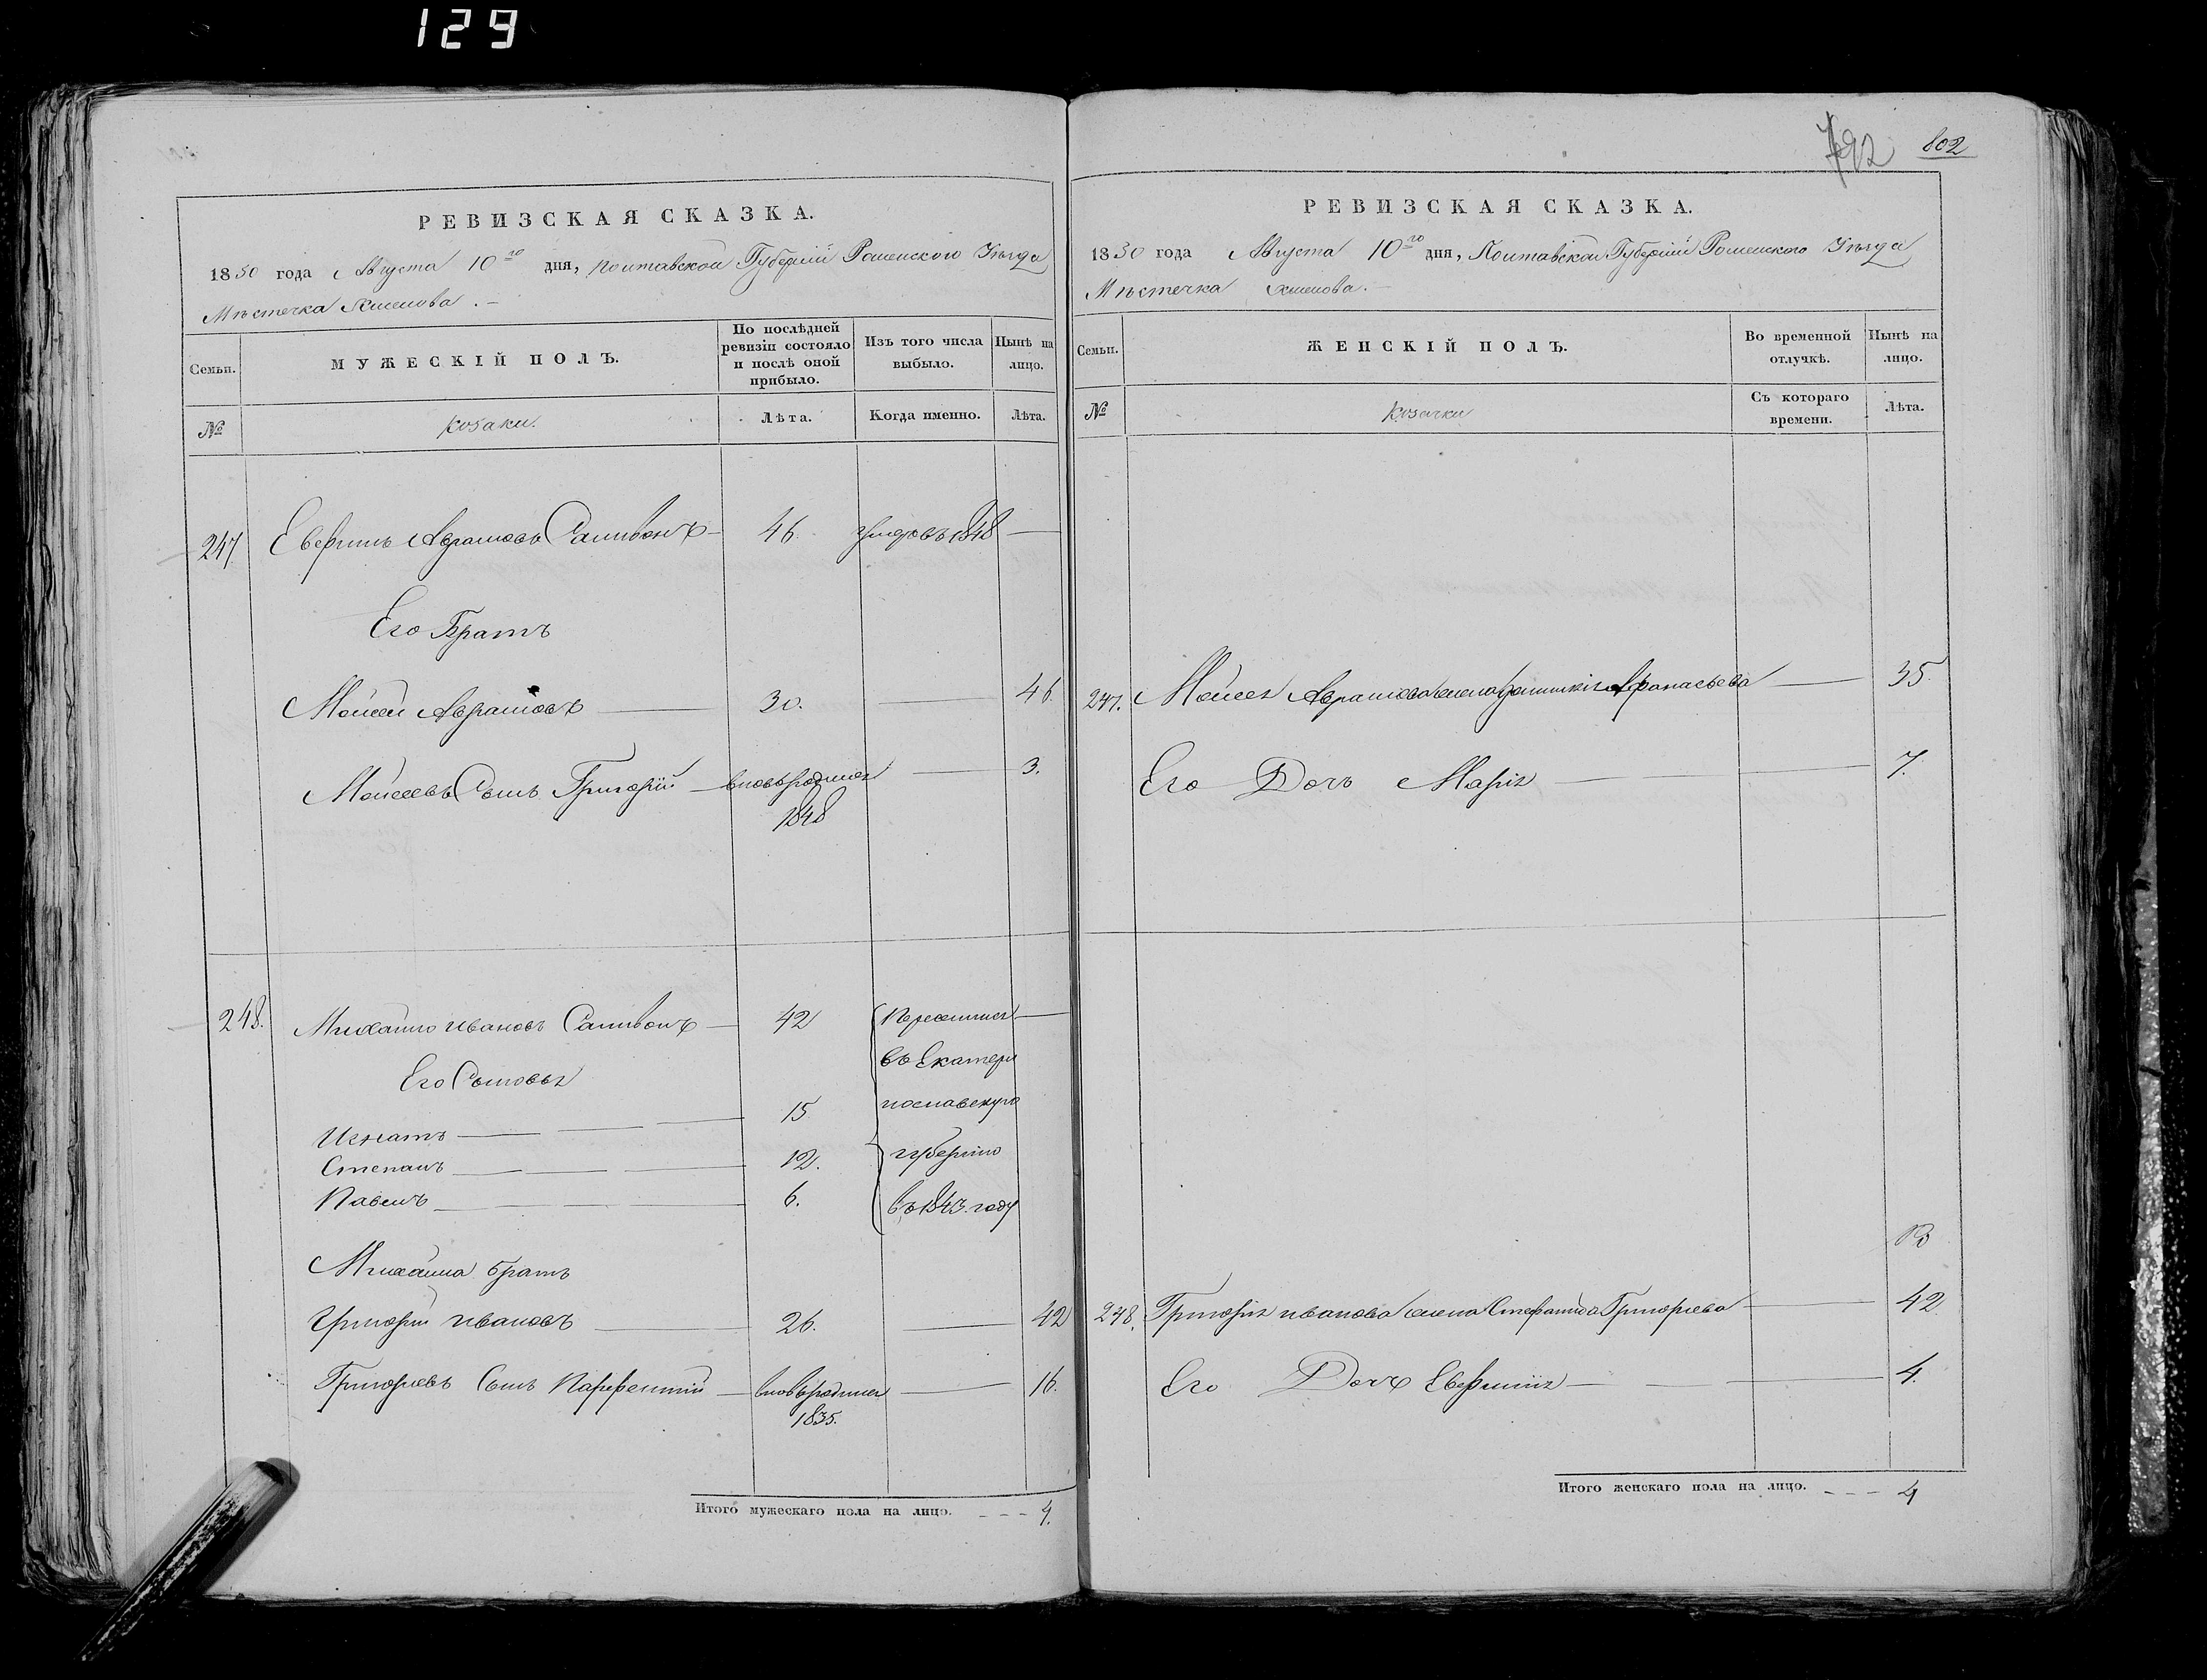 129
РЕВИЗСКАЯ СКАЗКА.
1850 года Августа 10го дня, Полтавской Губерніи Роменского Уѣзда
Мѣстечка
Семьи.
МУЖЕСКІЙ ПОЛЪ.
По послѣдней ревизіи состояло и послѣ оной прибыло.
Изъ того числа выбыло.
Нынѣ на лицо.
№
козаки.
Лѣта.
Когда именно.
Лѣта.
247 Аврамовъ 46 умеръ въ 1848
Его Братъ
Моисей Аврамовъ 30. 46
Моисеевъ Сынъ Григорій вновьродился 3.
1848
248. Михайло Ивановъ 42 Переселился
въ Екатери
Его Сыновья
нославскую
Игнатъ 15
Степанъ 12. губернію
Павелъ 6. въ 1843. году
Михайла братъ
Григорій Ивановъ 26. 42
Григорьевъ Сынъ Парфентій вновьродился 16.
1835.
Итого мужескаго пола на лицо. 4.
792 802
РЕВИЗСКАЯ СКАЗКА.
1850 года Августа 10го дня, Полтавской Губерніи Роменского Уѣзда
Мѣстечка
Семьи.
ЖЕНСКІЙ ПОЛЪ.
Во временной отлучкѣ.
Нынѣ на лицо.
№
козачки
Съ котораго времени.
Лѣта.
247. Моисея Аврамова жена Афанасьева 35.
Его Дочь Марія 7.
248. Григорія Иванова жена Стефанида Григорьева 42
Его Дочь Евфимія 4.
Итого женскаго пола на лицо. 4